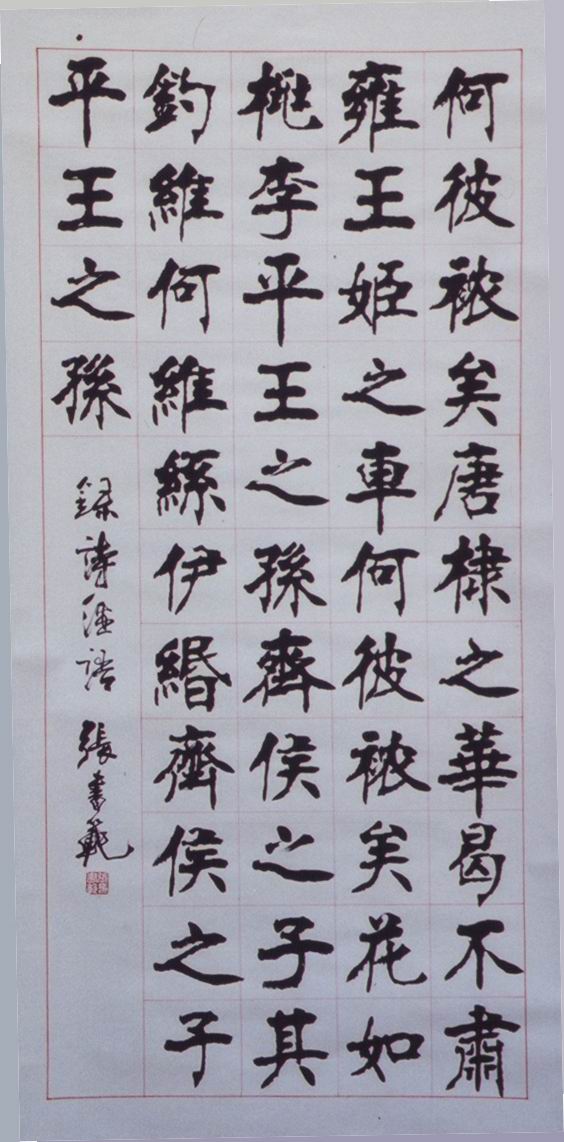 何彼襛矣唐棣之華曷不肅
雍王姬之車何彼襛矣花如
桃李平王之孫齊侯之子其
釣維何維絲伊緡齊侯之子
平王之孫
錄詩經語 張書範